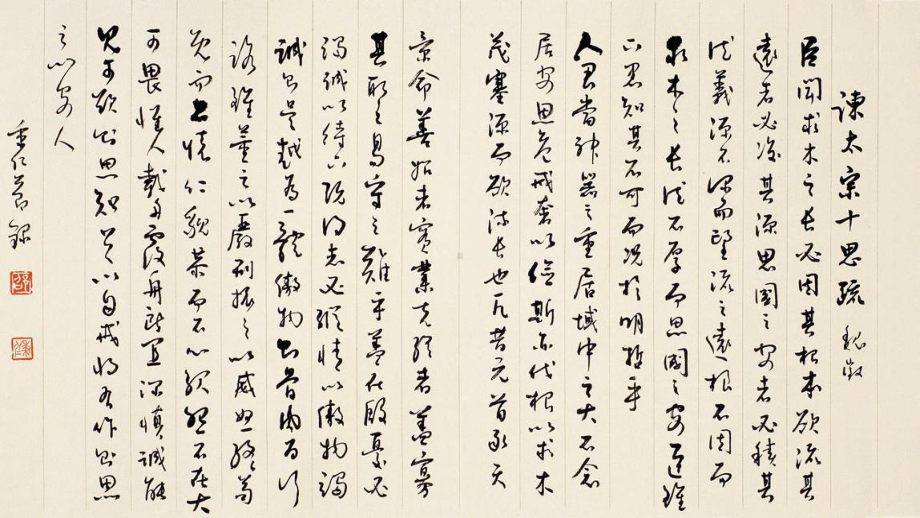 諫太宗十思疏 魏徵
臣聞求木之長必固其根本欲流其
遠者必浚其源思國之安者必積其
德義源不深而望流之遠根不固而
求木之長德不厚而思國之安臣雖
下愚知其不可而況於明哲乎
人君當神器之重居域中之大不念
居安思危戒奢以儉斯亦伐根以求木
茂塞源而欲流長也凡昔元首承天
景命善始者實繁克終者蓋寡
其取之易守之難乎蓋在殷憂必
竭誠以待下既得志必縱情以傲物竭
誠則吳越為一體傲物則骨肉為行
路雖董之以嚴刑振之以威怒終苟
免而不懷仁貌恭而不心服怨不在大
可畏惟人載舟覆舟所宜深慎誠能
見可欲則思知足以自戒將有作則思
止以安人
節錄